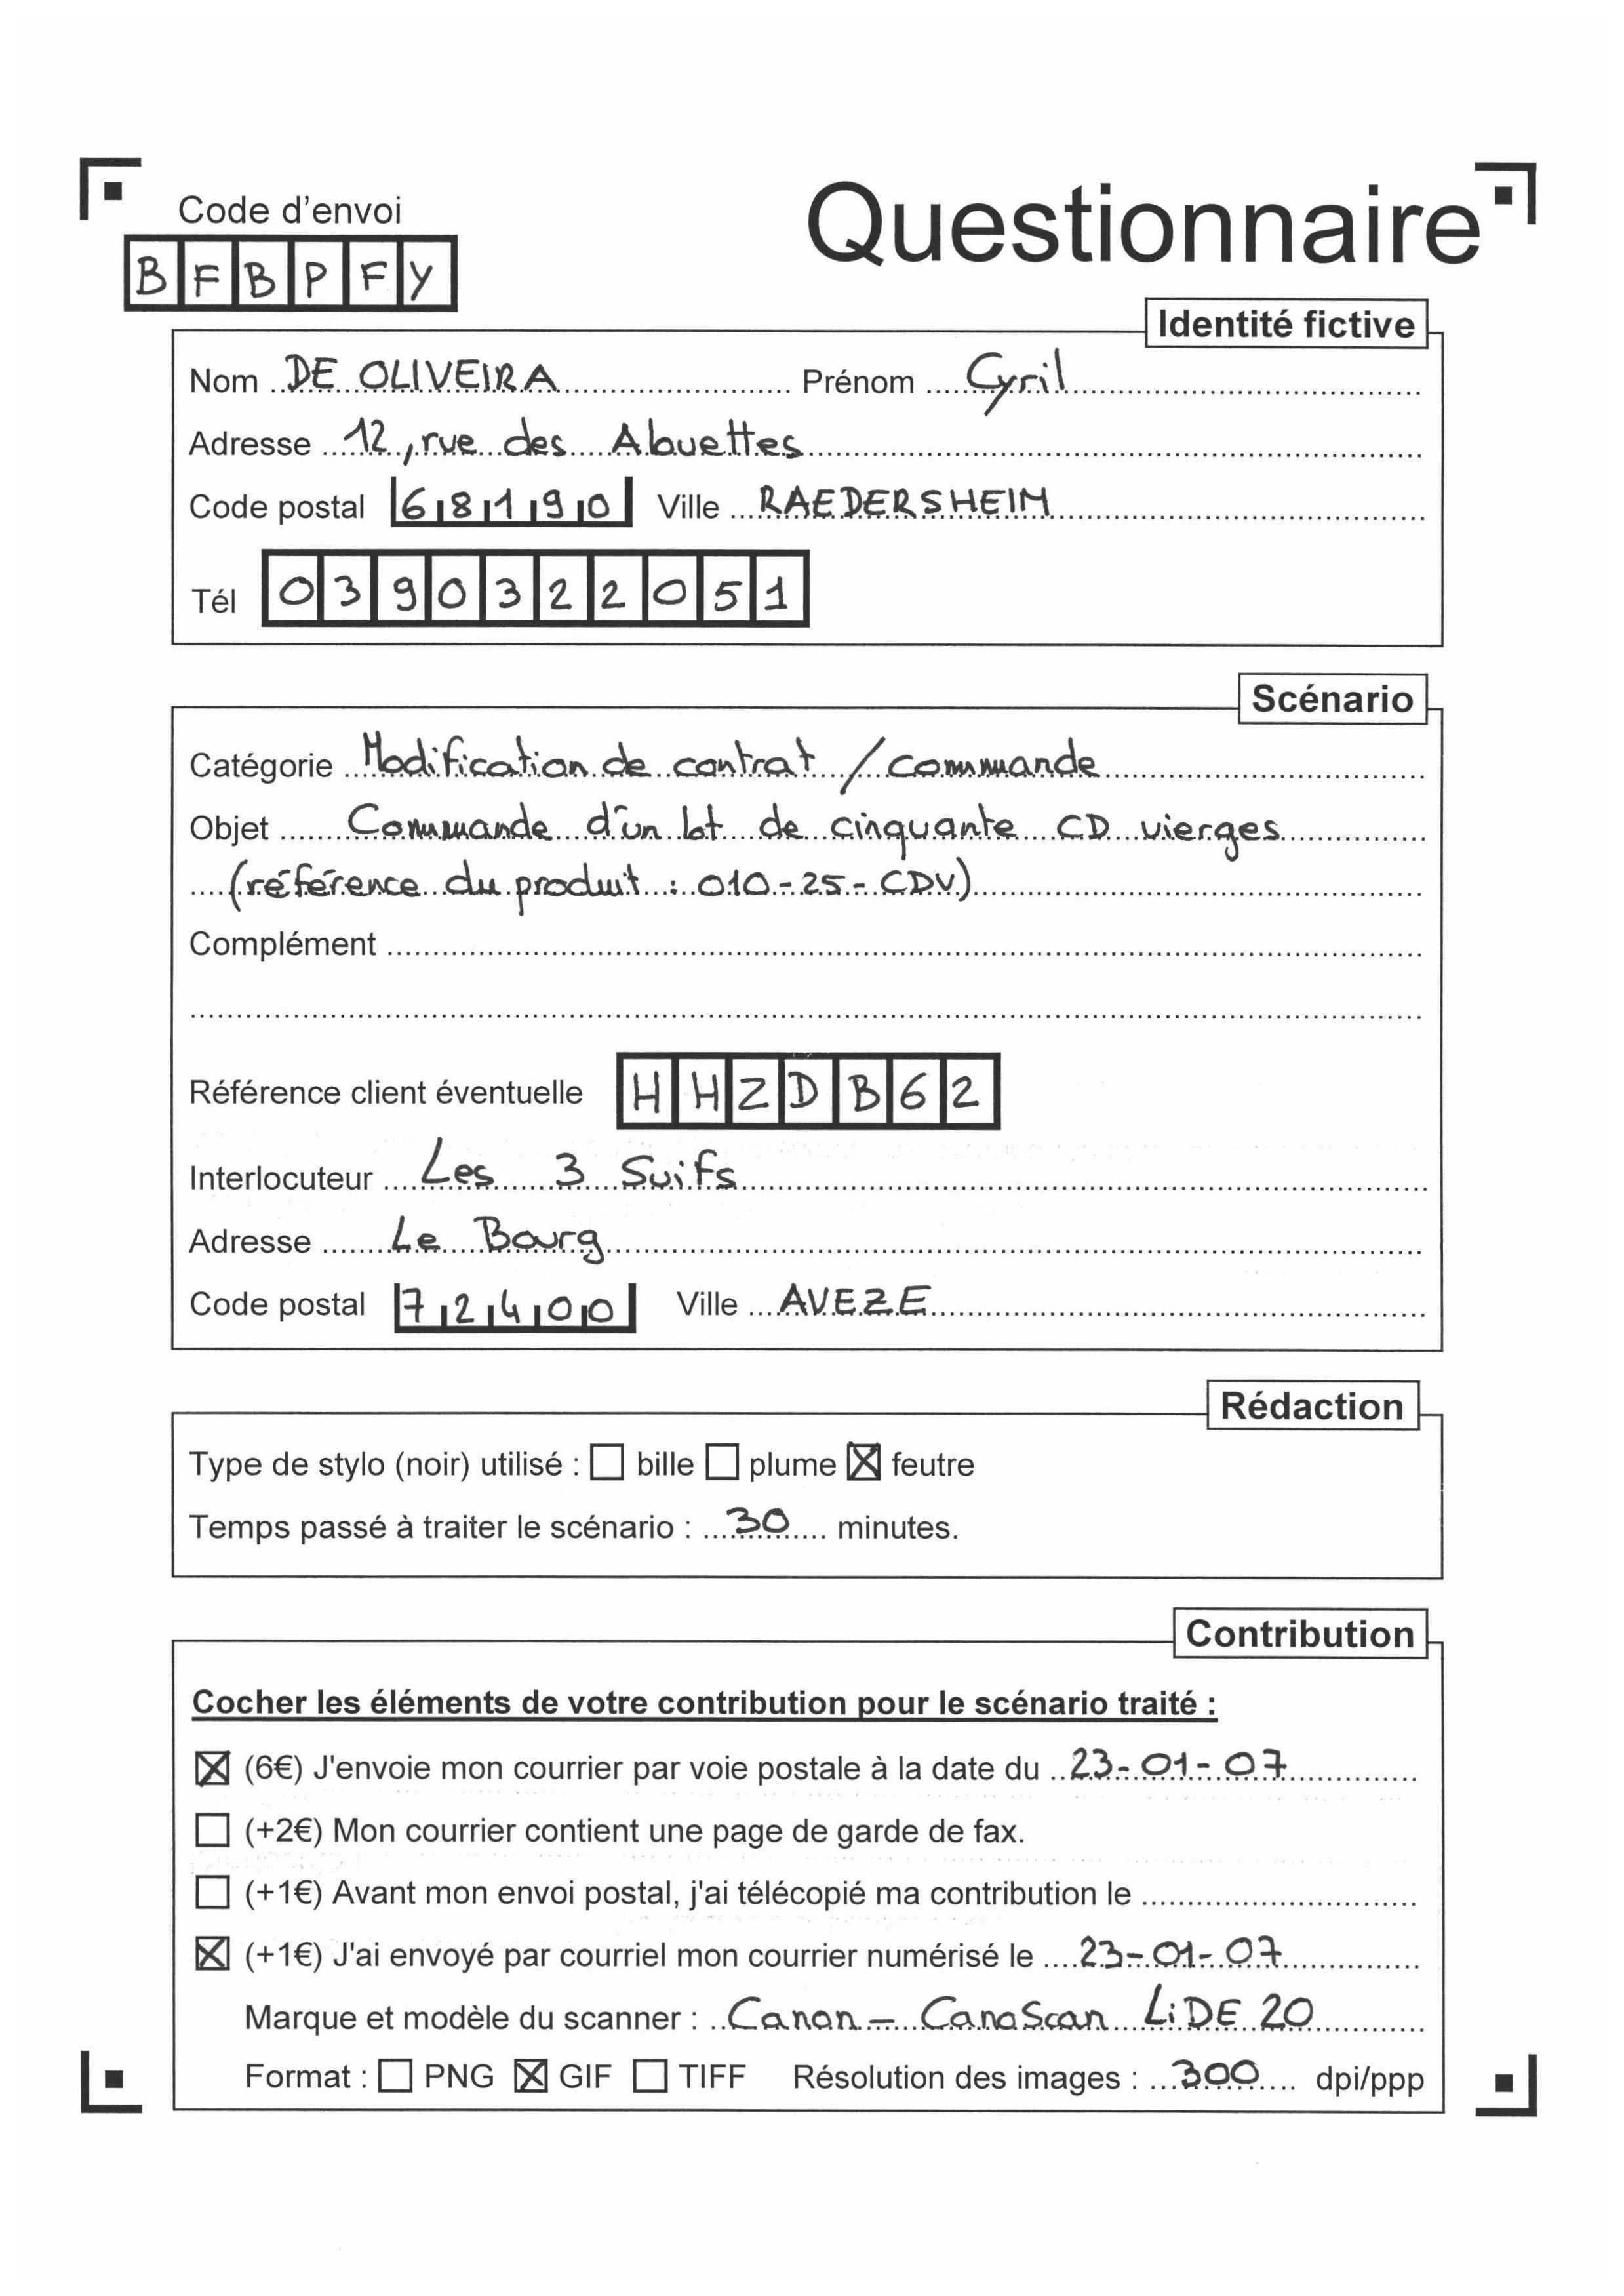 Code d'envoi
Questionnaire
BFBPFY
Identité fictive
Nom DE OLIVEIRA Prénom Cyril
Adresse 12, rue des Alouettes
Code postal 68190 Ville RAEDERSHEIM
Tél 0390322051
Scénario
Catégorie Modification de contrat / commande
Objet Commande d'un lot de cinquante CD vierges
(référence du produit : 010-25-CDV)
Complément
Référence client éventuelle HHZDB62
Interlocuteur Les 3 Suifs
Adresse Le Bourg
Code postal 72400 Ville AVEZE
Rédaction
Type de stylo (noir) utilisé : ☐ bille ☐ plume ☒ feutre
Temps passé à traiter le scénario : 30 minutes.
Contribution
Cocher les éléments de votre contribution pour le scénario traité :
☒ (6€) J'envoie mon courrier par voie postale à la date du 23-01-07
☐ (+2€) Mon courrier contient une page de garde de fax.
☐ (+1€) Avant mon envoi postal, j'ai télécopié ma contribution le
☒ (+1€) J'ai envoyé par courriel mon courrier numérisé le 23-01-07
Marque et modèle du scanner : Canon - CanoScan LiDE 20
Format : ☐ PNG ☒ GIF ☐ TIFF Résolution des images : 300 dpi/ppp